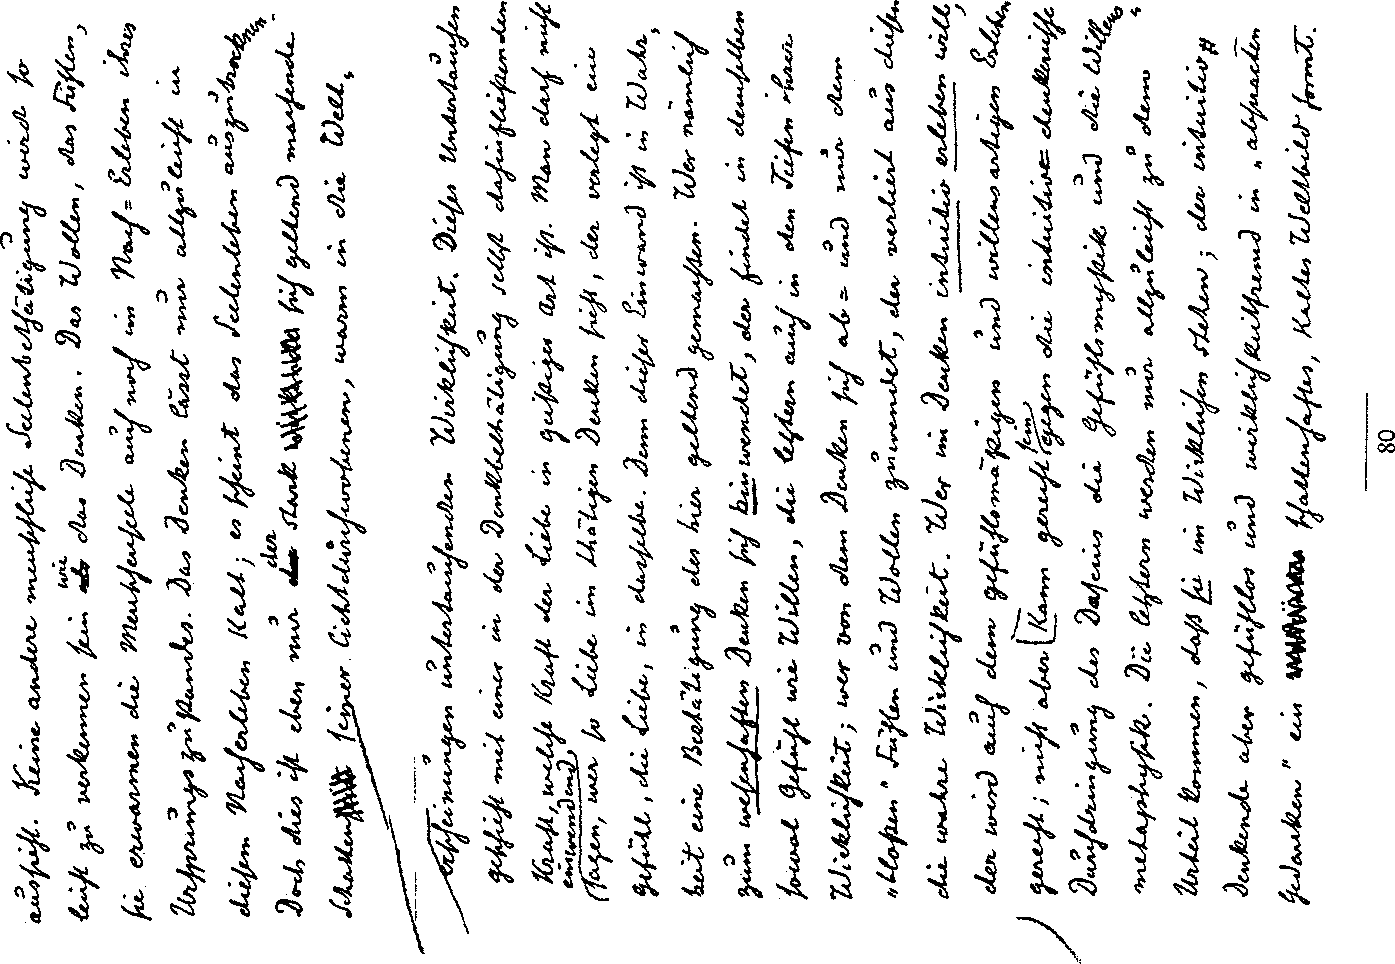 ausspricht. Keine andere menschliche Seelenbethätigung wird so
leicht zu verkennen sein wie das Denken. Das Wollen, das Fühlen,
sie erwarmen die Menschenseele auch noch im Nach=Erleben ihres
Ursprungszustandes. Das Denken lässt nur allzuleicht in
diesem Nacherleben kalt; es scheint das Seelenleben auszutrocknen.
Doch dies ist eben nur der stark sich geltend machende
Schatten seiner lichtdurchwobenen, warm in die Welt„
erscheinungen untertauchenden Wirklichkeit. Dieses Untertauchen
geschieht mit einer in der Denkbethätigung selbst dahinfließenden
Kraft, welche Kraft der Liebe in geistiger Art ist. Man darf nicht
einwendend sagen, wer so Liebe im thätigen Denken sieht, der verlegt ein
Gefühl, die Liebe, in dasselbe. Denn dieser Einwand ist in Wahr„
heit eine Bestätigung des hier geltend gemachten. Wer nämlich
zum wesenhaften Denken sich hinwendet, der findet in demselben
sowol Gefühl wie Willen, die letztern auch in den Tiefen ihrer
Wirklichkeit; wer von dem Denken sich ab= und nur dem
„bloßen“ Fühlen und Wollen zuwendet, der verliert aus diesen
die wahre Wirklichkeit. Wer im Denken intuitiv erleben will,
der wird auch dem gefühlsmäßigen und willensartigen Erleben
gerecht; nicht aber kann gerecht sein gegen die intuitiv=denkerische
Durchdringung des Daseins die Gefühlsmystik und die Willens„
metaphysik. Die letztern werden nur allzuleicht zu dem
Urteil kommen, daß sie im Wirklichen stehen; der intuitiv
Denkende aber gefühllos und wirklichkeitfremd in „abstrakten
Gedanken“ ein schattenhaftes, kaltes Weltbild formt.
80